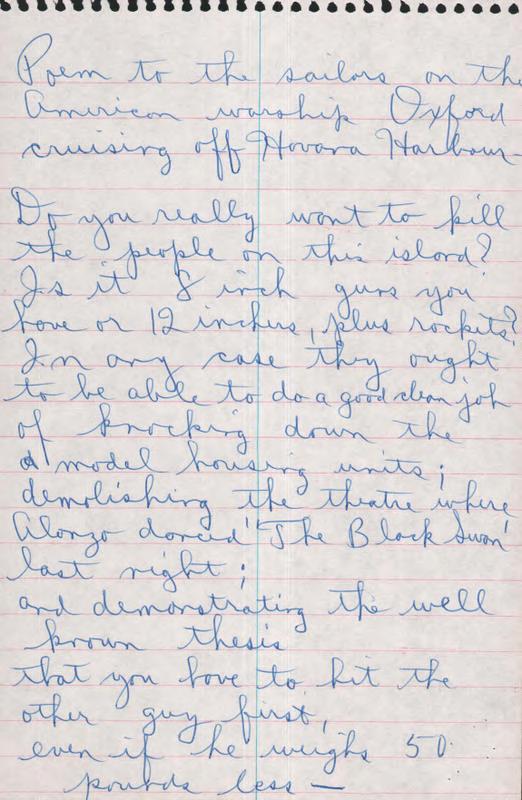 Poem to the sailors on the
American warship Oxford
cruising off Havana Harbour—
Do you really want to kill
the people on this island?
Is it 8 inch guns you
have or 12 inchers, plus rockets?
In any case they ought
to be able to do a good clean job
of knocking down the
model housing units;
demolishing the theatre where
Alonzo danced "The Black Swan"
last night;
and demonstrating the well
known thesis
that you have to hit the
other guy first,
even if he weighs 50
pounds less —